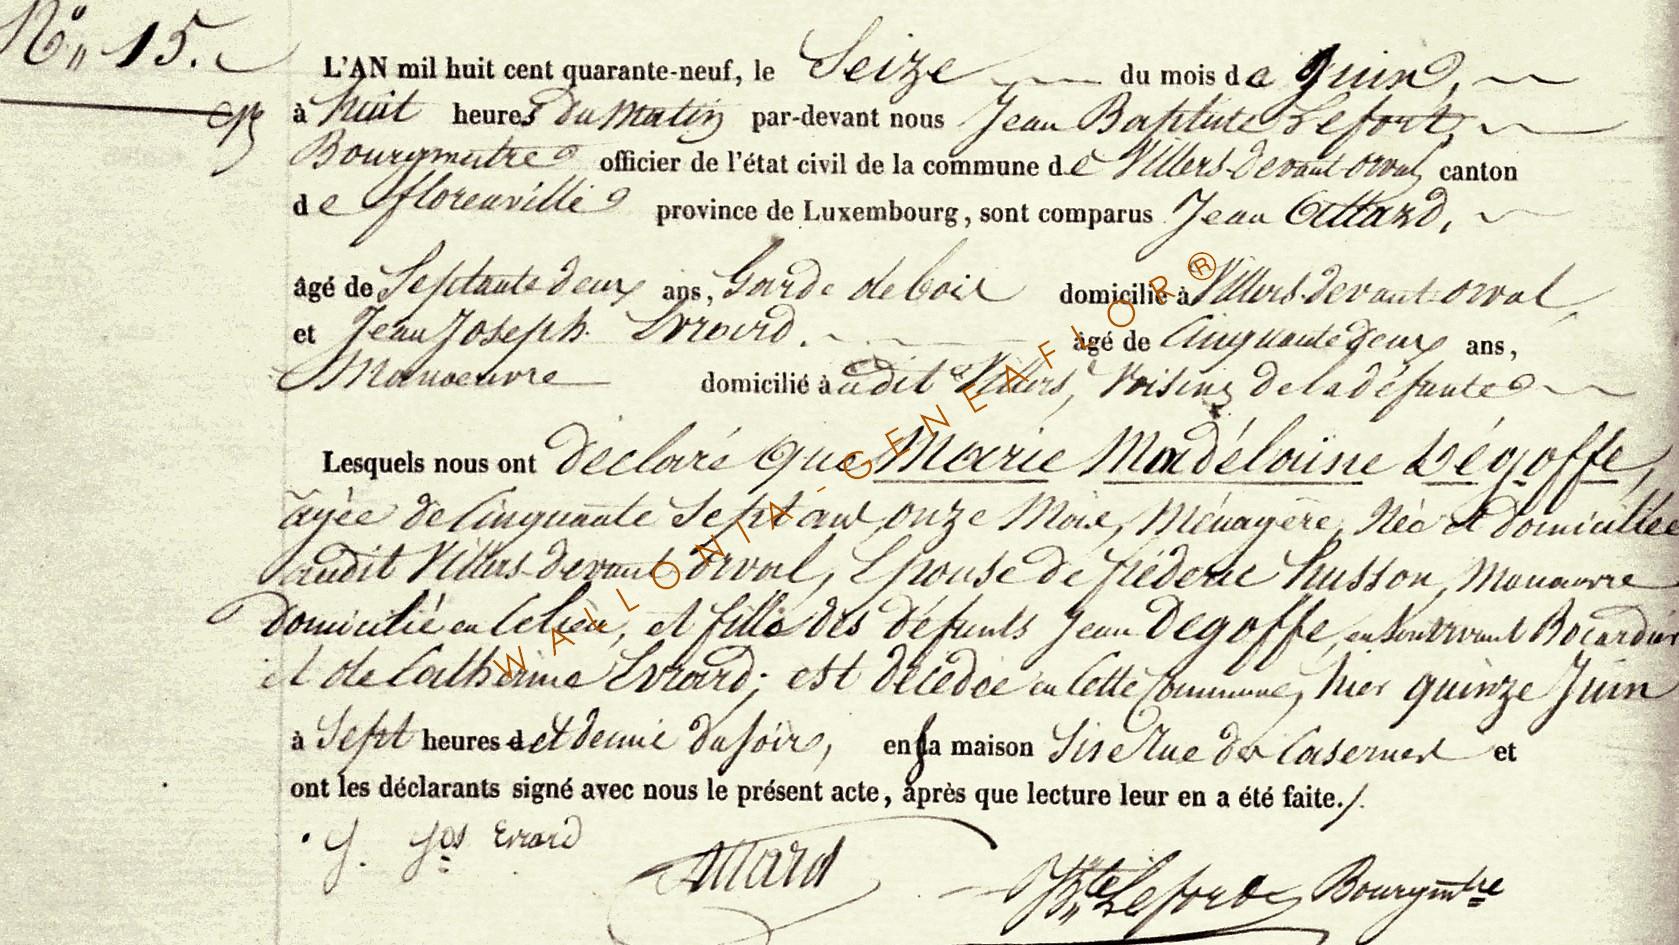 N° 15.
L'AN mil huit cent quarante-neuf, le Seize du mois de Juin,
à huit heures du Matin par-devant nous Jean Baptiste Lefort,
Bourgmetre officier de l'état civil de la commune de Villers-devant-orval canton
de florenville province de Luxembourg, sont comparus Jean Attard,
âgé de Septante deux ans, Garde de bois domicilié à Villers-devant-orval,
et Jean Joseph Evrard. âgé de Cinquante deux ans,
Manoeuvre domicilié à audit Villers, Voisins de la défunte
Lesquels nous ont déclaré que Marie Madéleine Dégoffe,
agée de Cinquante Sept ans onze Mois, Ménagère, Née et domiciliée
audit Villers-devant-orval, Epouse de fréderic husson, Manoeuvre
domicilié en Celieu, et fille des défunts Jean Degoffe, en Son vivant Bocardeur
et de Catherine Evrard; est décédée en Cette Commune, hier quinze Juin
à Sept heures d et demie du Soir, en sa maison Sise Rue des Casernes et
ont les déclarants signé avec nous le présent acte, après que lecture leur en a été faite./.
J. Jos Evrard
Attard
J Bte Lefort Bourgmtre
WALLONIA-GENEAFLOR®